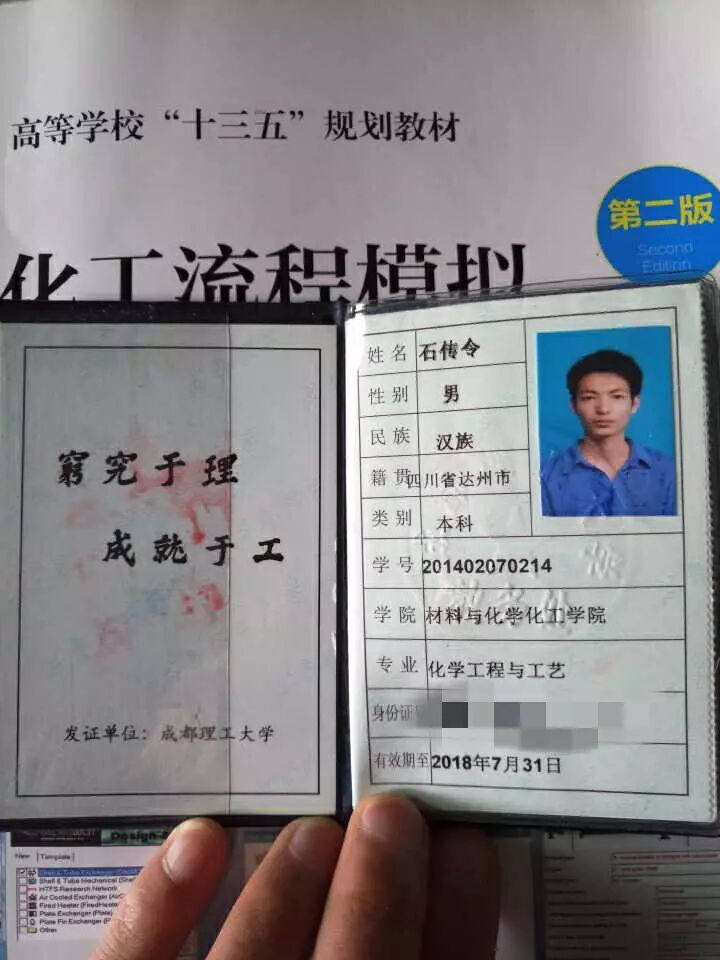 高等学校“十三五”规划教材
第二版
Second
Edition
化工流程模拟
窮究于理
成就于工
发证单位：成都理工大学
姓名 石传令
性别 男
民族 汉族
籍贯 四川省达州市
类别 本科
学号 201402070214
学院 材料与化学化工学院
专业 化学工程与工艺
身份证
有效期至 2018年7月31日
New Template
Shell & Tube Exchanger
Shell & Tube Mechanical
HTFS Research Network
Air Cooled Exchanger
Fired Heater
Plate Exchanger (Plate)
Plate Fin Exchanger
Other